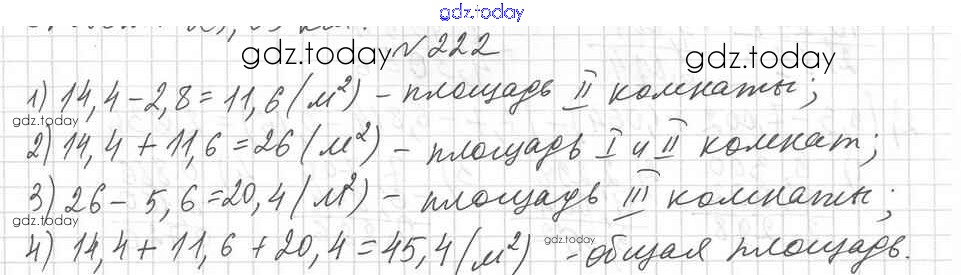 gdz.today
№ 222
gdz.today gdz.today
1) 14,4 - 2,8 = 11,6 (м²) - площадь II комнаты;
gdz.today
2) 14,4 + 11,6 = 26 (м²) - площадь I и II комнат;
3) 26 - 5,6 = 20,4 (м²) - площадь III комнаты;
gdz.today
4) 14,4 + 11,6 + 20,4 = 45,4 (м²) - общая площадь.
gdz.today gdz.today